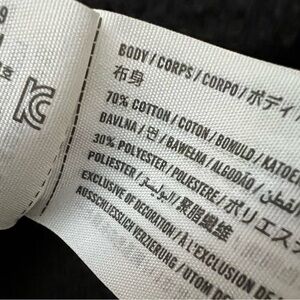 9
KC
BODY / CORPS / CORPO / ボディ
布身
70% COTTON / COTON / BOMULD / KATOE
BAVLNA / 면 / BAWEŁNA / ALGODÃO / قطن
30% POLYESTER / POLYESTERE / ポリエス
POLIESTER / البوليستر / 聚脂纖維
EXCLUSIVE OF DECORATION / A L'EXCLUSION DE
AUSSCHLIESSLICH VERZIERUNG / UTOM